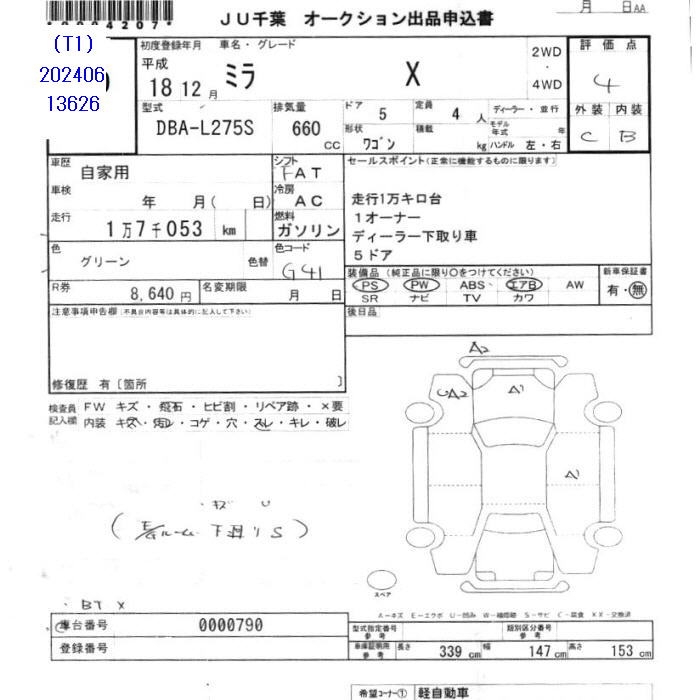 *0004207*
JU千葉 オークション出品申込書
月 日AA
(T1)
202406
13626
初度登録年月 車名・グレード
平成
18 12 月 ミラ X
2WD
・
4WD
評価点
4
外装 内装
C B
型式 排気量 ドア 5 定員 4 人 ディーラー・並行
DBA-L275S 660 cc
形状 ワゴン 積載 kg
モデル年式 年
ハンドル 左・右
車歴 自家用
シフト FAT
車検 年 月( 日)
冷房 AC
走行 1万7千053 km
燃料 ガソリン
色 グリーン 色替
色コード G41
R券 8,640 円
名変期限 月 日
セールスポイント(正常に機能するものに限ります)
走行1万キロ台
1オーナー
ディーラー下取り車
5ドア
装備品(純正品に限り○をつけてください)
PS PW ABS エアB AW
SR ナビ TV カワ
新車保証書
有・無
後日品
注意事項申告欄(不具合内容等は具体的に記入して下さい)
修復歴 有〔箇所 〕
検査員
記入欄
FW キズ・飛石・ヒビ割・リペア跡・×要
内装 キズ・汚レ・コゲ・穴・スレ・キレ・破レ
A2
A2
A1
A2
スペア
・キズ U
下廻りS
・BT X
A-キズ E-エクボ U-凹み W-補修跡 S-サビ C-腐食 XX-交換済
車台番号 0000790
登録番号
型式指定番号
参考
類別区分番号
参考
車庫証明用
参考
長さ 339 cm 幅 147 cm 高さ 153 cm
希望コーナー① 軽自動車